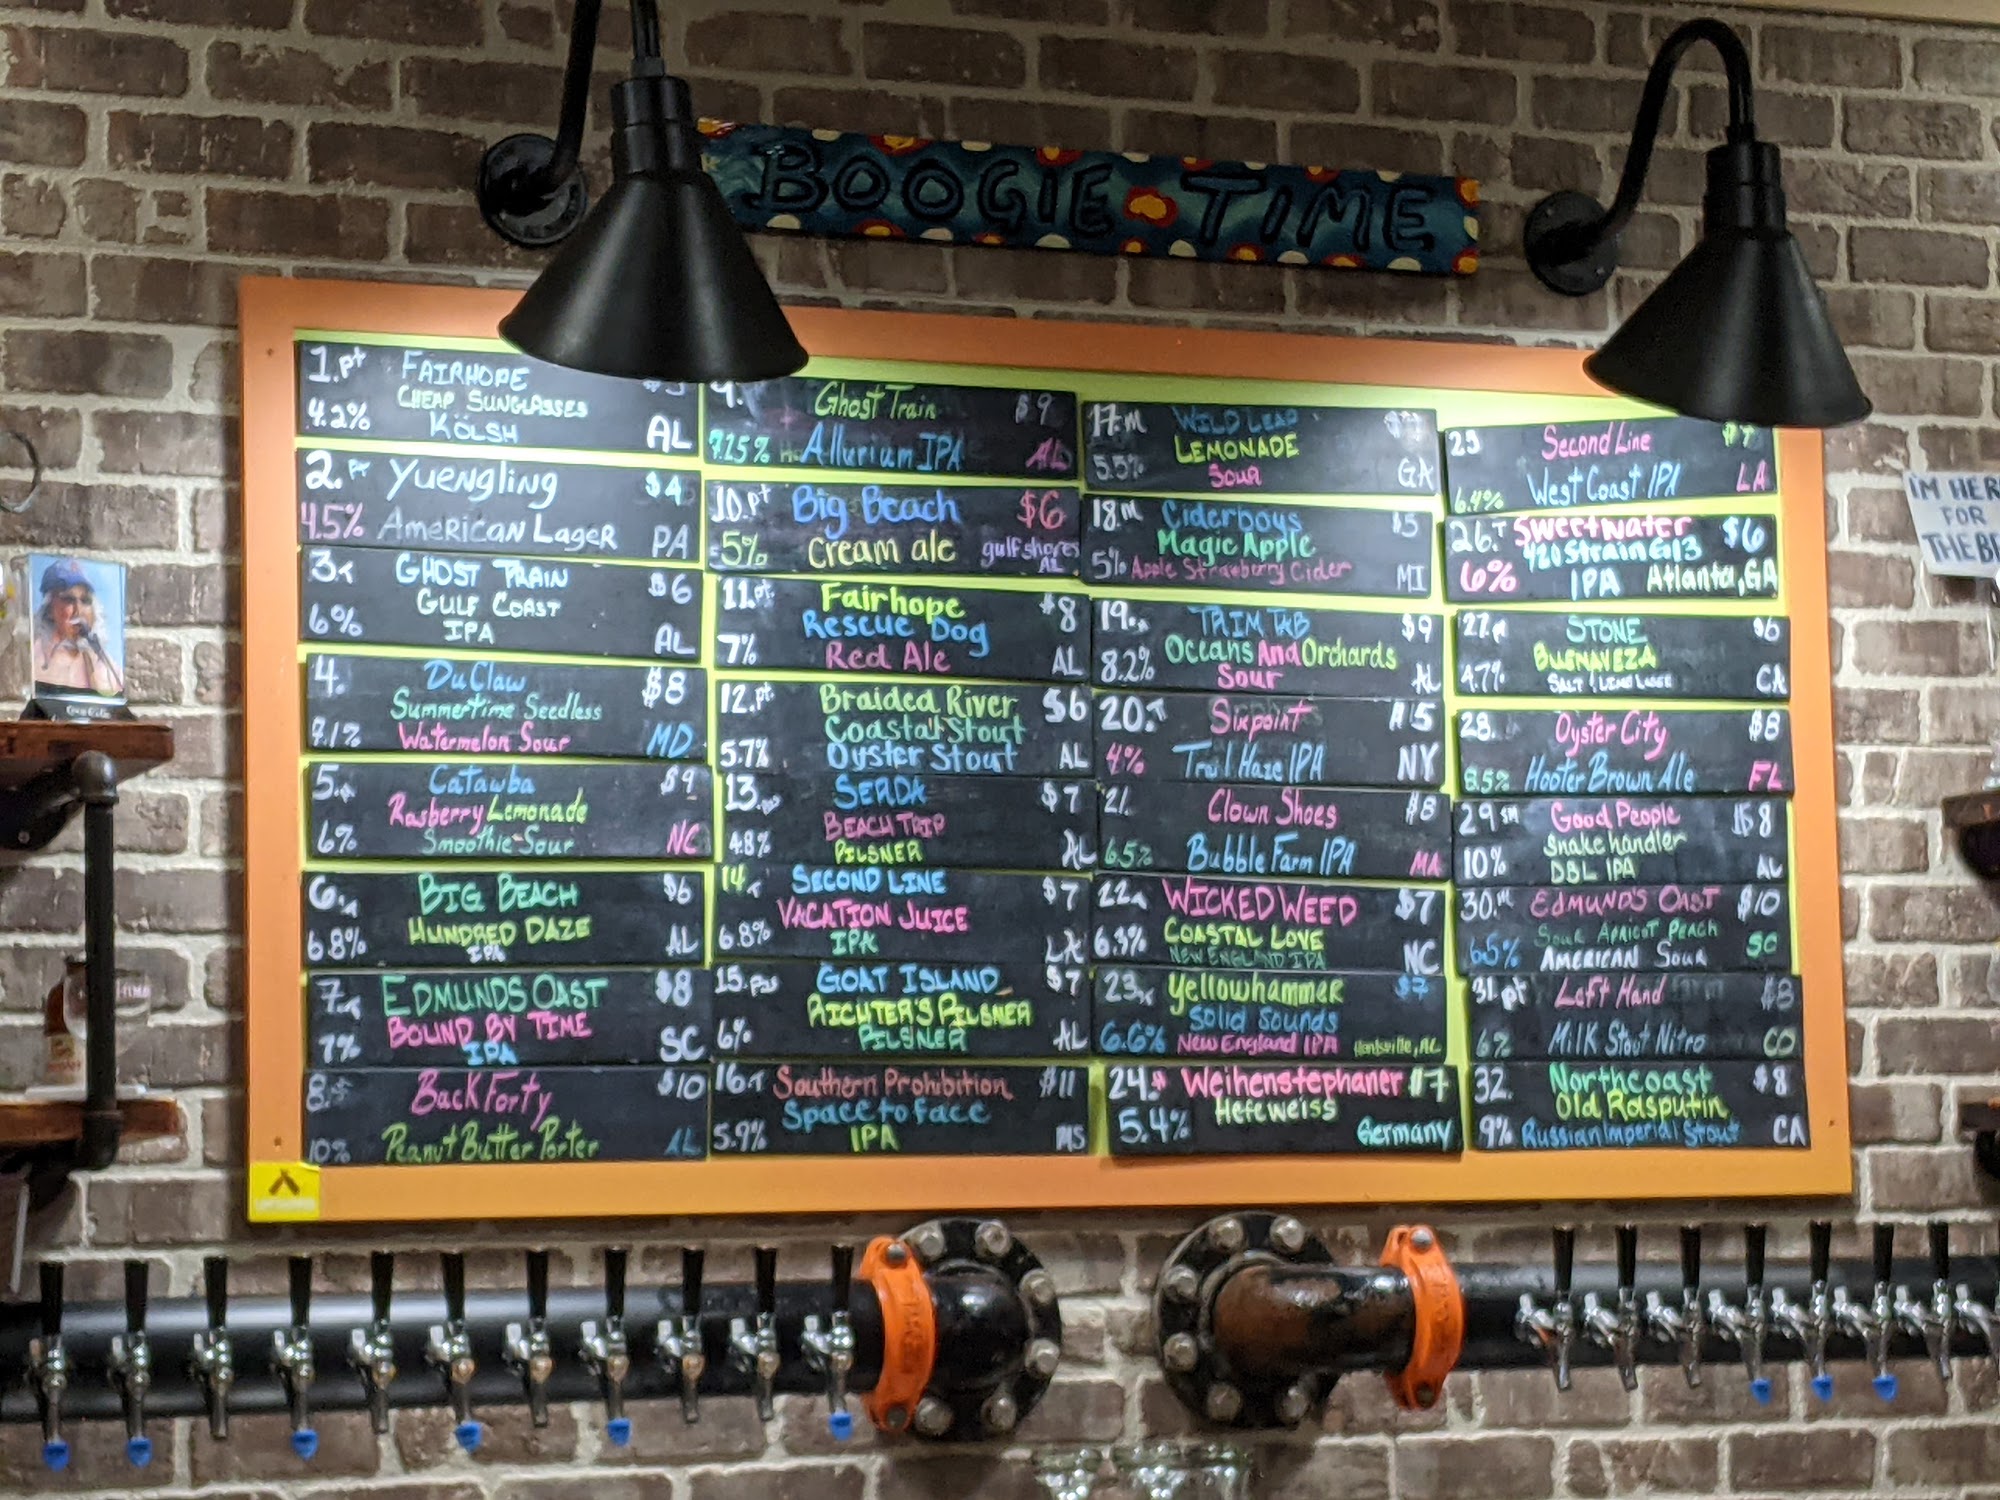 BOOGIE TIME
1. pt FAIRHOPE
CHEAP SUNGLASSES
4.2% KÖLSH AL
2. PT Yuengling $4
4.5% AMERICAN LAGER PA
3. GHOST TRAIN $6
GULF COAST
6% IPA AL
4. DuClaw $8
Summertime Seedless
7.1% Watermelon Sour MD
5. Catawba $9
Rasberry Lemonade
6% Smoothie Sour NC
6. BIG BEACH $6
HUNDRED DAZE
6.8% IPA AL
7. EDMUNDS OAST $8
BOUND BY TIME
7% IPA SC
8. Back Forty $10
10% Peanut Butter Porter AL
9. Ghost Train $9
Allurium IPA AL
10. pt Big Beach $6
5% Cream ale gulf shores
AL
11. pt. Fairhope $8
Rescue Dog
7% Red Ale AL
12. pt. Braided River $6
Coastal Stout
5.7% Oyster Stout AL
13. SERDA $7
BEACH TRIP
4.8% PILSNER AL
14 SECOND LINE $7
VACATION JUICE
6.8% IPA LA
15. GOAT ISLAND $7
RICHTER'S PILSNER
6% PILSNER AL
16. Southern Prohibition $11
Space to Face
5.9% IPA MS
17. M WILD LEAP
LEMONADE
5.5% SOUR GA
18. M Ciderboys $5
Magic Apple
5% Apple Strawberry Cider MI
19. TRIM TAB $9
Oceans And Orchards
8.2% Sour AL
20. Sixpoint $5
4% Trail Haze IPA NY
21. Clown Shoes $8
6.5% Bubble Farm IPA MA
22. WICKED WEED $7
COASTAL LOVE
6.3% NEW ENGLAND IPA NC
23. Yellowhammer $7
Solid Sounds
6.6% New England IPA Huntsville, AL
24. Weihenstephaner $7
Hefeweiss
5.4% Germany
25 Second Line $7
6.4% West Coast IPA LA
26. T Sweetwater $6
420 Strain G13
6% IPA Atlanta, GA
27. STONE $6
BUENAVEZA
4.7% SALT & LIME LAGER CA
28. Oyster City $8
8.5% Hooter Brown Ale FL
29 SM Good People $8
Snake handler
10% DBL IPA AL
30. EDMUND'S OAST $10
Sour Apricot Peach
6.5% AMERICAN Sour SC
31. pt Left Hand $8
6% Milk Stout Nitro CO
32. Northcoast $8
Old Rasputin
9% Russian Imperial Stout CA
I'M HERE
FOR
THE